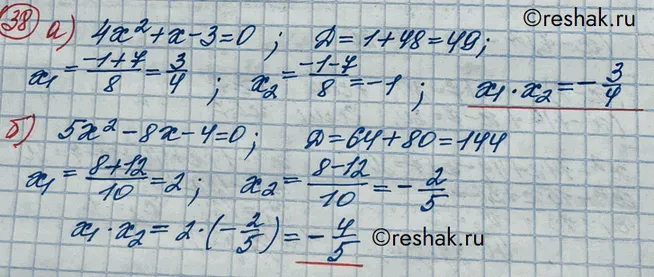 ©reshak.ru
38 а) 4x² + x - 3 = 0 ; Д = 1 + 48 = 49;
x₁ = (-1+7)/8 = 3/4 ; x₂ = (-1-7)/8 = -1 ; x₁ · x₂ = -3/4
б) 5x² - 8x - 4 = 0 ; Д = 64 + 80 = 144
x₁ = (8+12)/10 = 2 ; x₂ = (8-12)/10 = -2/5
x₁ · x₂ = 2 · (-2/5) = -4/5
©reshak.ru